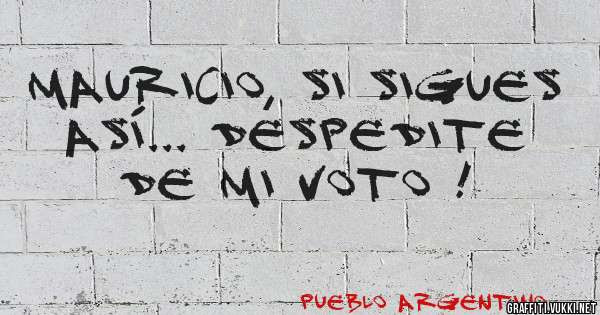 MAURICIO, SI SIGUES
ASÍ... DESPEDITE
DE MI VOTO !
PUEBLO ARGENTINO
GRAFFITI.YUKKI.NET